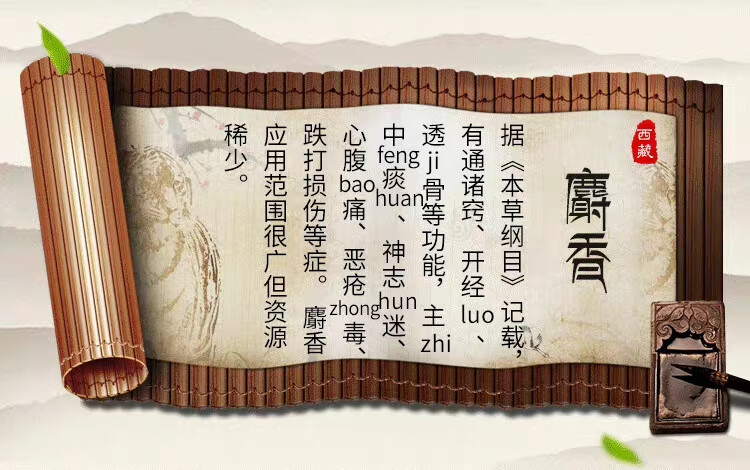 西藏
麝香
据《本草纲目》记载，
有通诸窍、开经luo、
透ji骨等功能，主zhi
中feng痰huan、神志hun迷、
心腹bao痛、恶疮zhong毒、
跌打损伤等症。麝香
应用范围很广但资源
稀少。